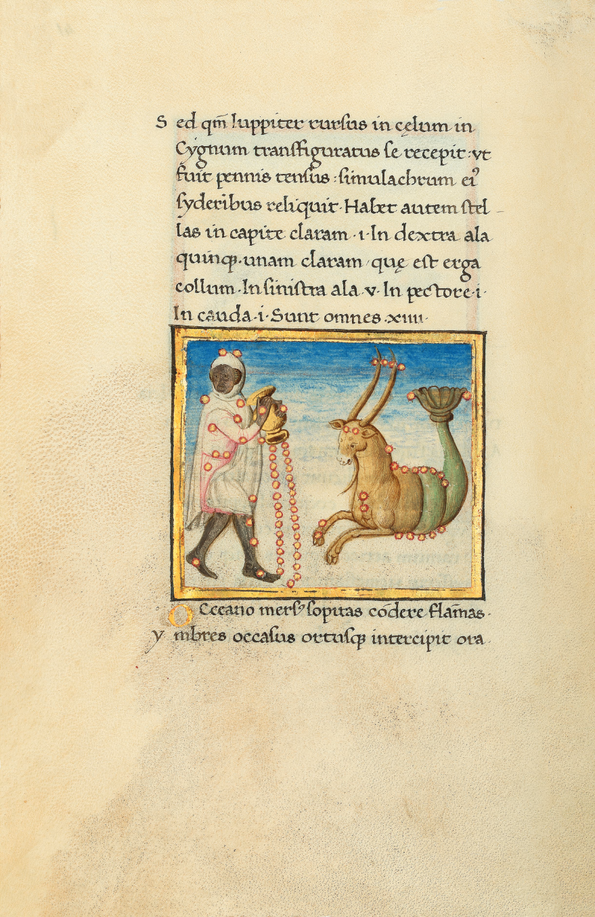 Sed qm̄ Iuppiter rursus in cęlum in
Cygnum transfiguratus se recepit: vt
fuit pennis tensus: simulachrum ei᷒
syderibus reliquit. Habet autem stel-
las in capite claram ·i· In dextra ala
quinq; unam claram quę est erga
collum. In sinistra ala ·v· In pectore ·i·
In cauda ·i· Sunt omnes ·xiiii·
Occeano mersꝰ sopitas cōdere flām̄as·
ymbres occasus ortusq; intercipit ora